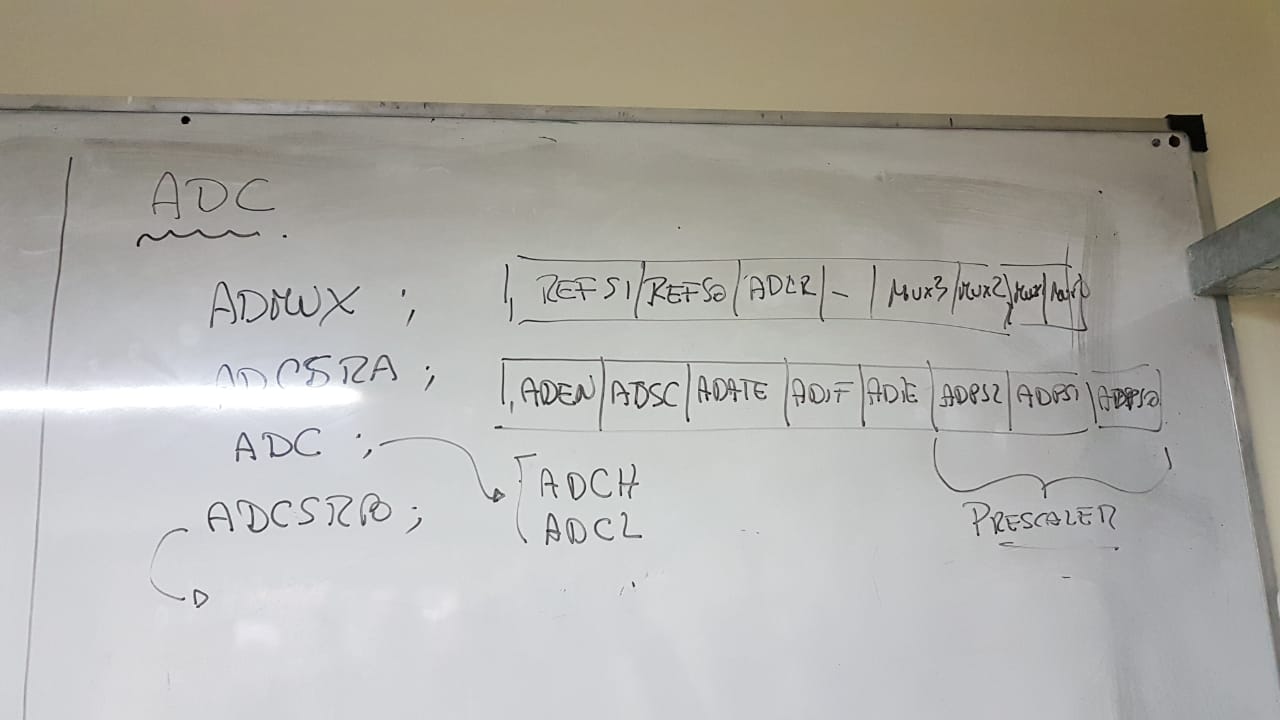 ADC
ADMUX ; REFS1 | REFS0 | ADLR | - | MUX3 | MUX2 | MUX1 | MUX0
ADCSRA ; ADEN | ADSC | ADATE | ADIF | ADIE | ADPS2 | ADPS1 | ADPS0
ADC ; ADCH
ADCL
ADCSRB ;
PRESCALER